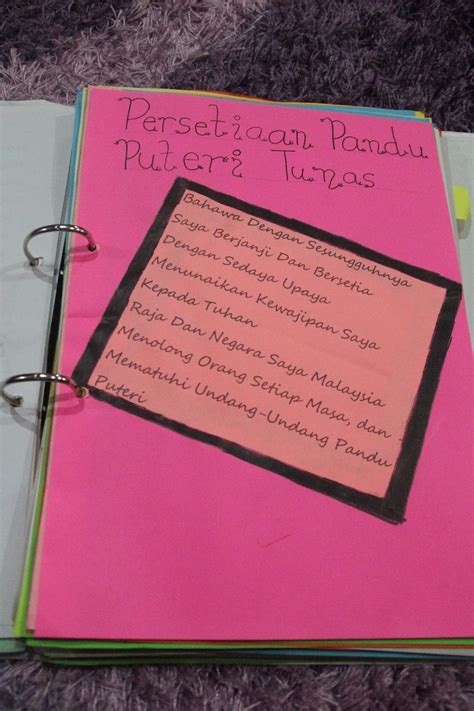 Persetiaan Pandu
Puteri Tunas
Bahawa Dengan Sesungguhnya
Saya Berjanji Dan Bersetia
Dengan Sedaya Upaya
Menunaikan Kewajipan Saya
Kepada Tuhan
Raja Dan Negara Saya Malaysia
Menolong Orang Setiap Masa, dan :
Mematuhi Undang-Undang Pandu
Puteri